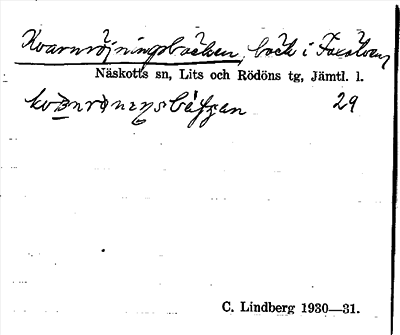 Kvarnröjningsbäcken, bäck i Faxälven
Näskotts sn, Lits och Rödöns tg, Jämtl. l.
29
C. Lindberg 1930—31.